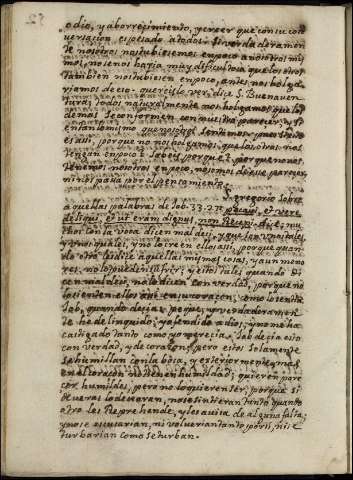 odio, y aborrecimiento, y creer que con su con
versacion es pesado a todos. Si verdaderamen
te nosotros nos tubiesemos en poco a nosotros mis
mos, no se nos haria muy dificultoso que los otros
tambien nos tubiesen en poco, antes nos holga
riamos de eso. quereislo ver, dice S. Buenaven
tura, todos naturalmente nos holgamos que los
demas se conformen con nuestro parecer, y si
entan lo mismo que nosotros sentimos. pues si esto
es asi, porque no nos holgamos, que los otros nos
tengan en poco? sabeis porque? porque no nos
tenemos nosotros en poco, no somos de ese parecer,
ni nos pasa por el pensamiento.
S. Gregorio sobre
aquellas palabras de Job. 33. 27. Peccavi, et vere
deliqui, et ut eram dignus, non recepi. dice, mu
chos con la voca dicen mal de si, y que son tales,
y tales quales, y no lo creen ellos asi, porque quan
do otro les dice aquellas mismas cosas, y aun meno
res, no lo pueden sufrir; y estos tales quando di
cen mal de si, no lo dicen con verdad, porque no
lo sienten ellos asi en su corazon, como lo sentia
Job, quando decia: peque, y verdaderamen
te he delinquido; y ofendido a dios, y no me ha
castigado tanto como yo merecia. Job decia esto
con verdad, y de corazon, pero estos solamente
se humillan con la boca, y exteriormente, mas
en el corazon no tienen humildad; quieren pare
cer humildes, pero no lo quieren ser, porque si
de veras lo desearan, no se sintieran tanto quando
otro les reprehende, y les avisa de alguna falta;
y no se escusarian, ni volverian tanto por si, ni se
turbarian como se turban.